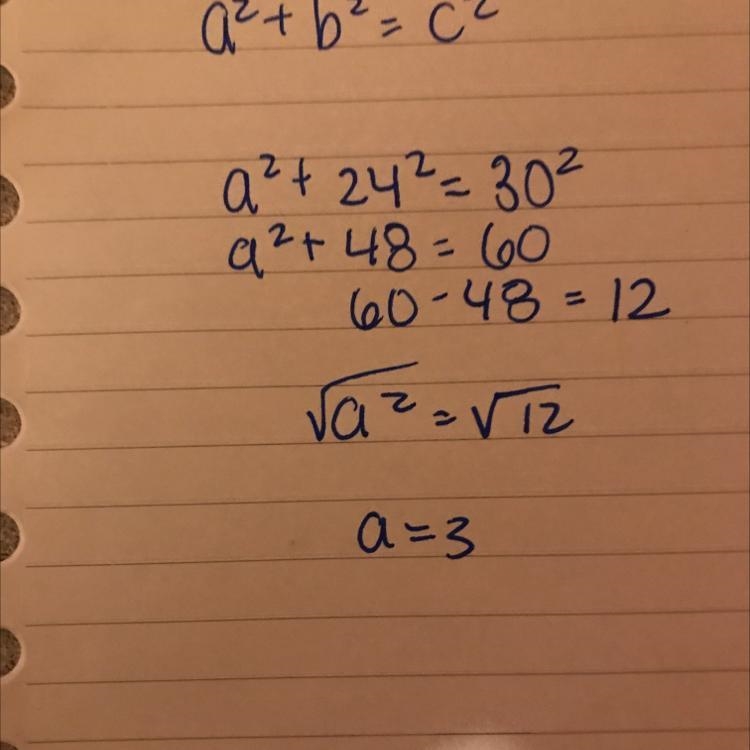 a² + b² = c²
a² + 24² = 30²
a² + 48 = 60
60 - 48 = 12
√a² = √12
a = 3